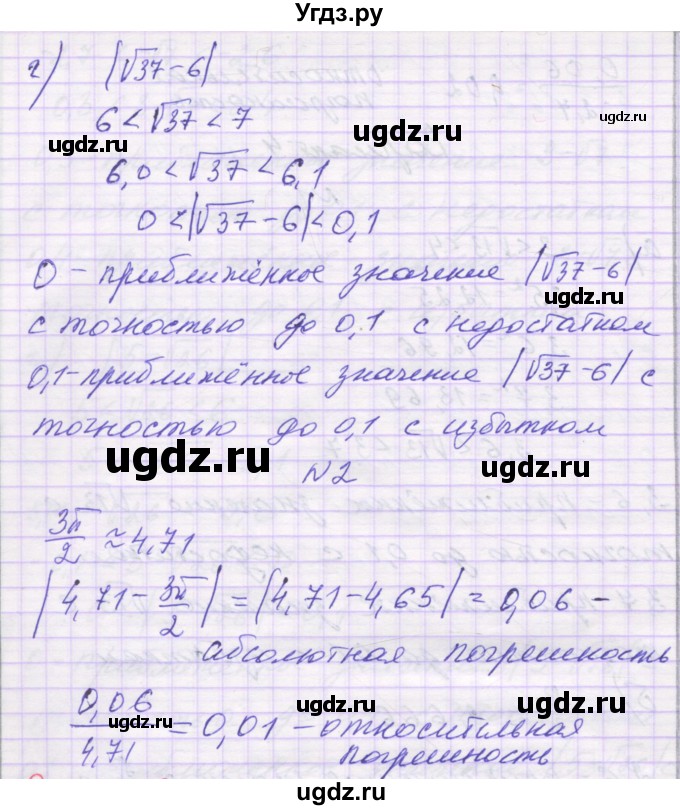 Угдз.ру
г) |√37-6|
ugdz.ru
6<√37<7
ugdz.ru
ugdz.ru
6,0<√37<6,1
0<|√37-6|<0,1
0-приближённое значение |√37-6|
ugdz.ru
с точностью до 0,1 с недостатком
0,1-приближённое значение |√37-6| с
ugdz.ru
точностью до 0,1 с избытком
ugdz.ru
ugdz.ru
N2
3π/2≈4,71
|4,71-3π/2|=|4,71-4,65|=0,06-
ugdz.ru
ugdz.ru
абсолютная погрешность
0,06/4,71=0,01-относительная
ugdz.ru
ugdz.ru
погрешность
ugdz.ru